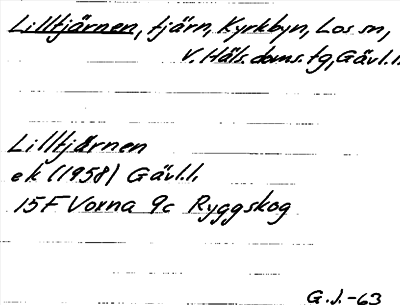 Lilltjärnen, tjärn, Kyrkbyn, Los sn,
V. Häls. doms. tg, Gävl. l.
Lilltjärnen
ek (1958) Gävl. l.
15F Voxna 9c Ryggskog
G.J.-63